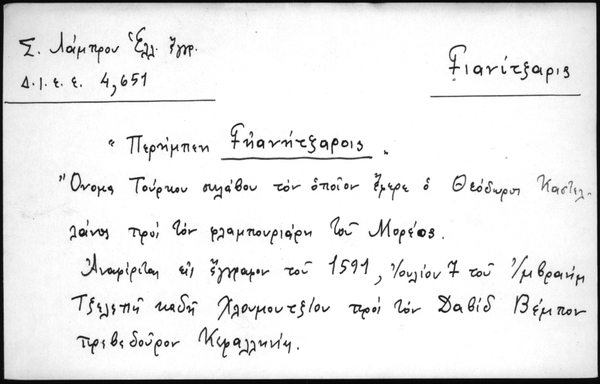 Σ. Λάμπρου Ἑλλ. ἔγγρ.
Δ.Ι.Ε.Ε. 4,651
Γιανίτζαρις
"Περήμπεη Γηανήτζαροις.
Ὄνομα Τούρκου σκλάβου τὸν ὁποῖον ἔφερε ὁ Θεόδωρος Καστελ-
λάνος πρὸς τὸν φλαμπουριάρη τοῦ Μορέος.
Ἀναφέρεται εἰς ἔγγραφον τοῦ 1591, Ἰουλίου 7 τοῦ Ἰμβραήμ
Τζελεπῆ καδῆ Χλουμουτζίου πρὸς τὸν Δαβὶδ Βέμπον
πρεβεδοῦρον Κεφαλληνίης.